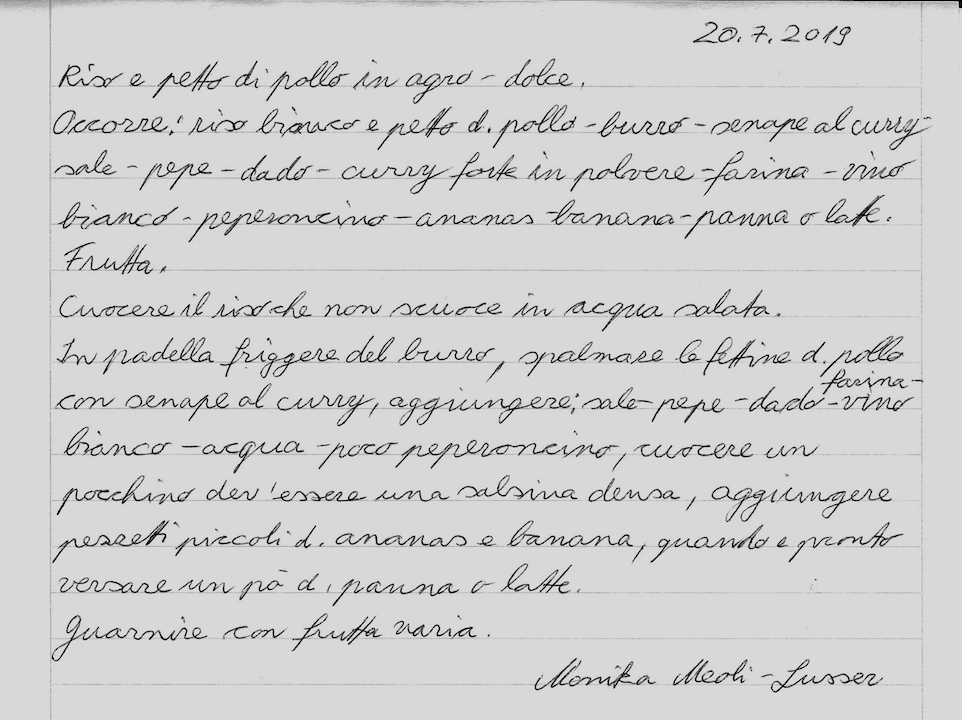 20.7.2019
Riso e petto di pollo in agro-dolce.
Occorre: riso bianco e petto d. pollo - burro - senape al curry -
sale - pepe - dado - curry forte in polvere - farina - vino
bianco - peperoncino - ananas - banana - panna o latte.
Frutta.
Cuocere il riso che non scuoce in acqua salata.
In padella friggere del burro, spalmare le fettine d. pollo
farina -
con senape al curry, aggiungere; sale - pepe - dado - vino
bianco - acqua - poco peperoncino, cuocere un
pochino dev'essere una salsina densa, aggiungere
pezzetti piccoli d. ananas e banana, quando e pronto
versare un pò d. panna o latte.
Guarnire con frutta varia.
Monika Meoli - Lusser